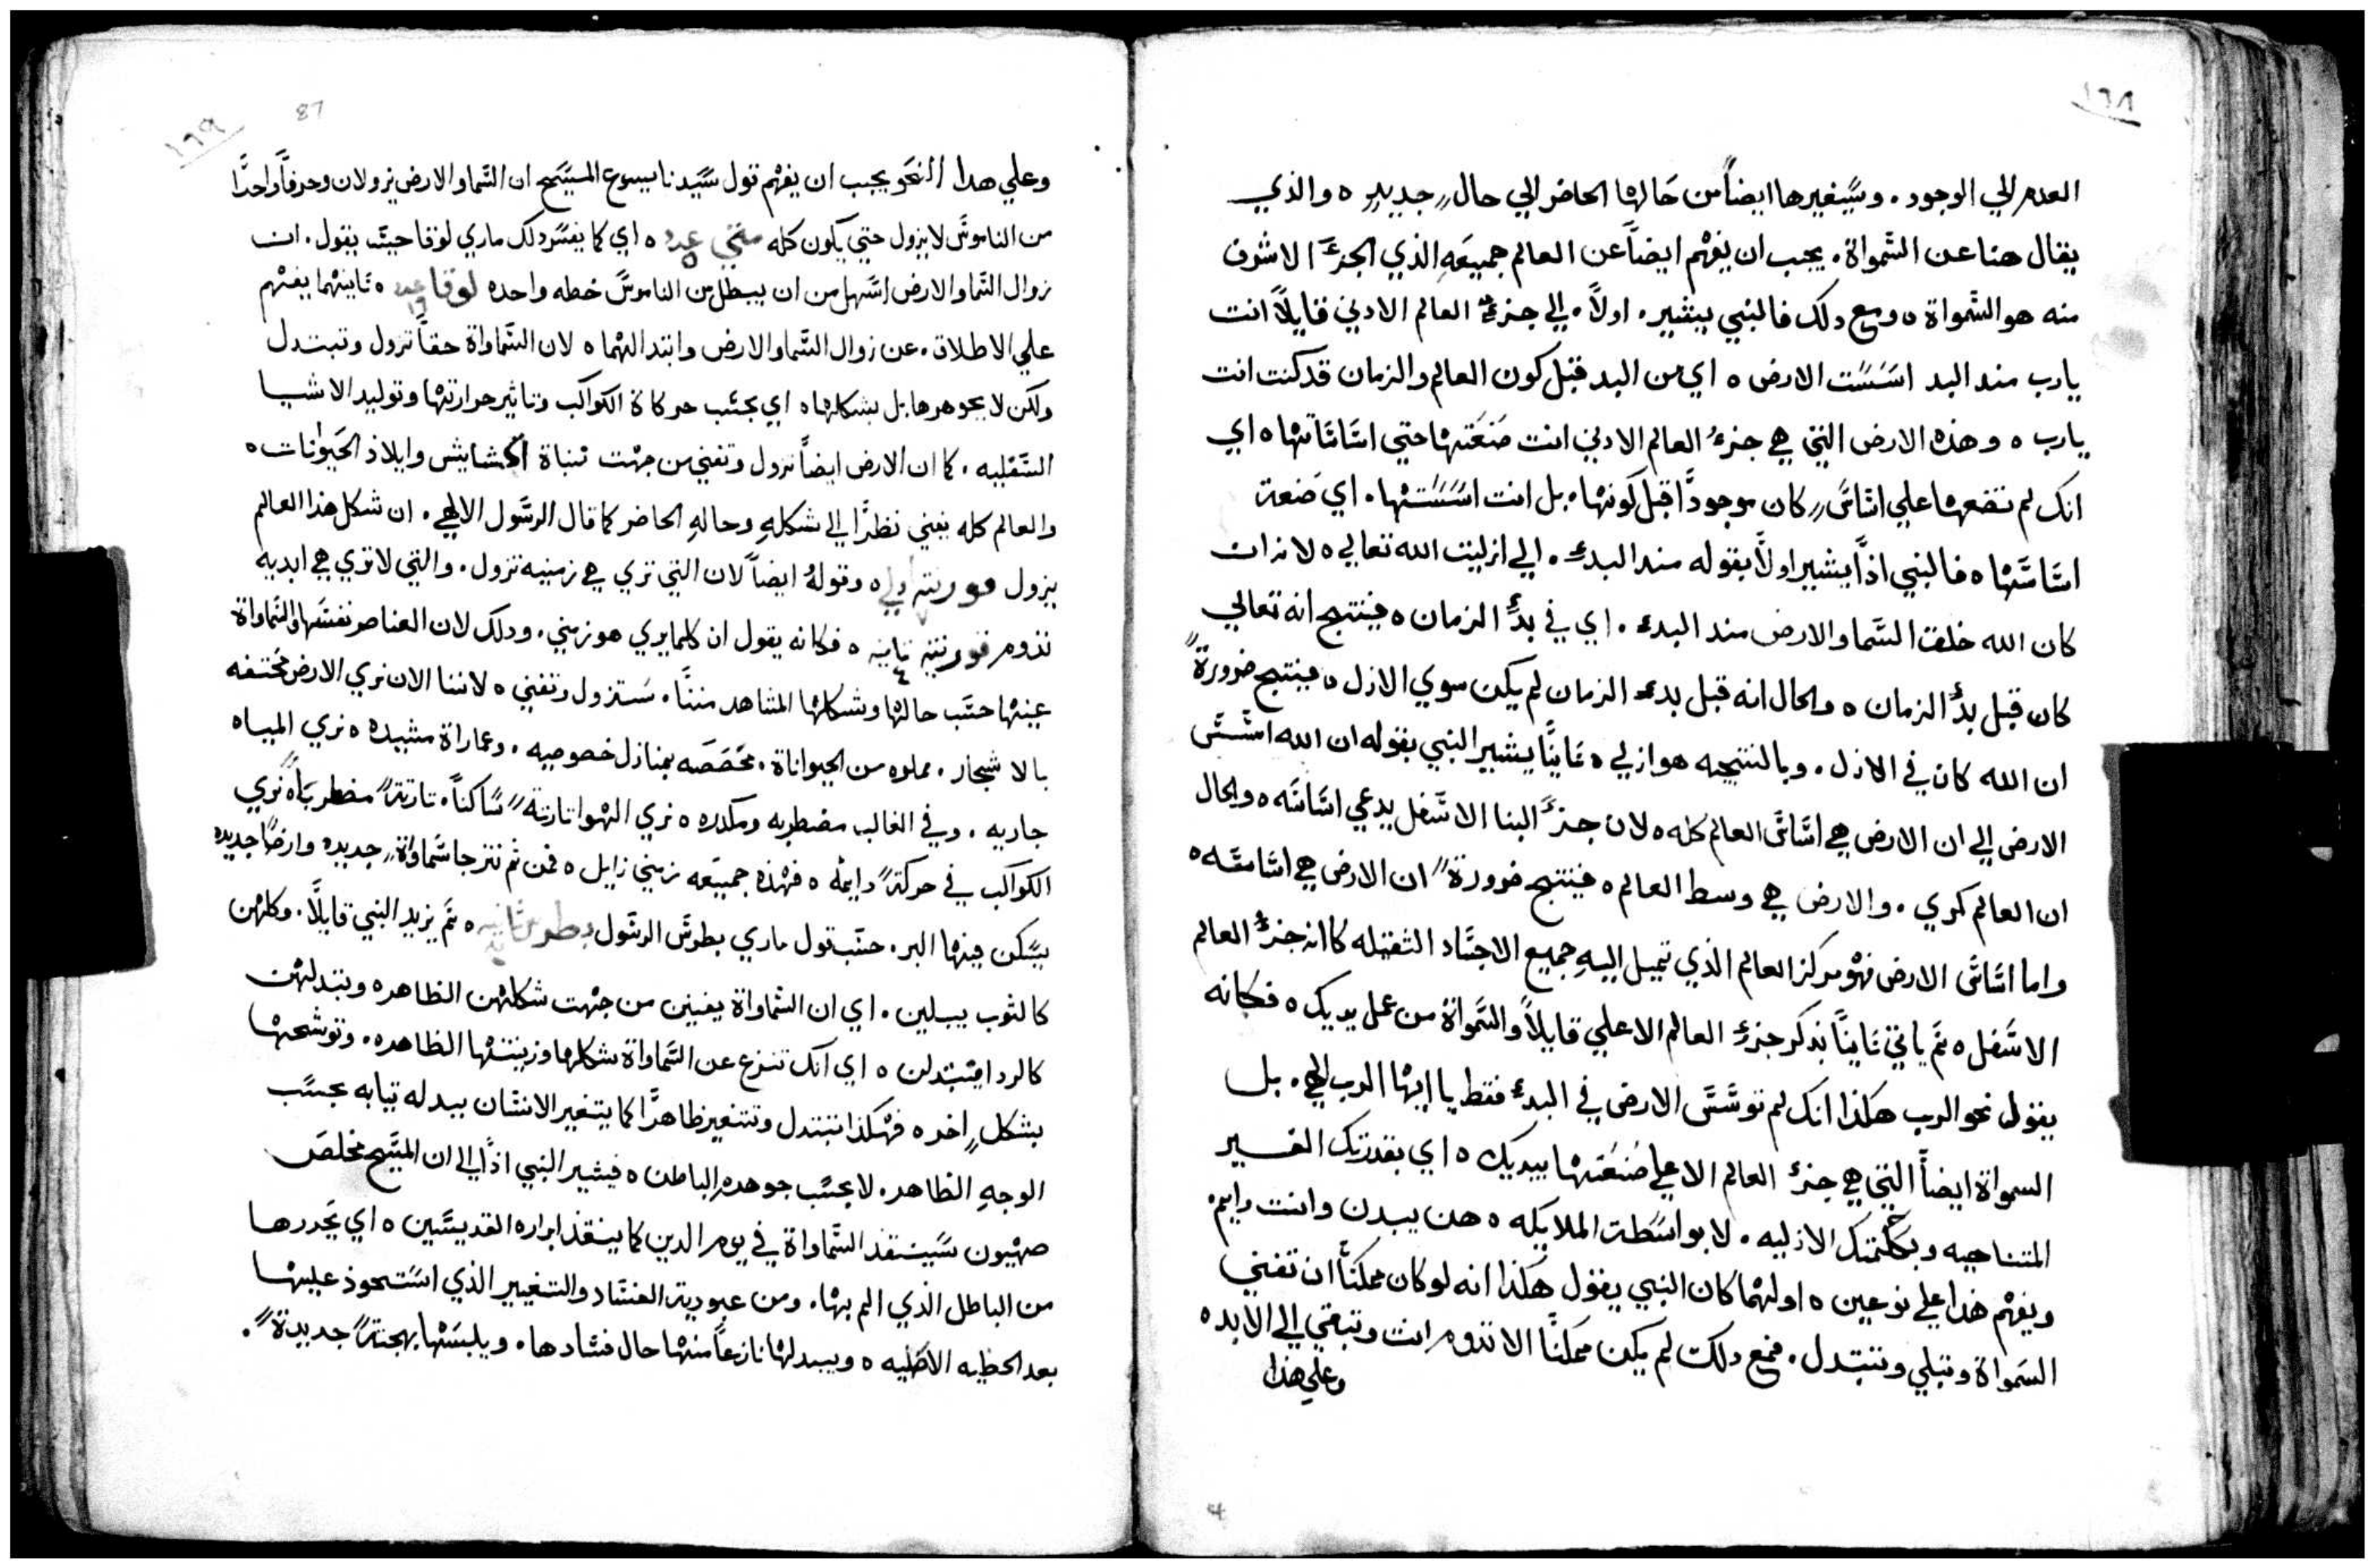 ١٦٨
العدم الي الوجود . وسيغيرها ايضاً من حالها الحاضر الي حالٍ جديدٍ ه والذي
يقال هنا عن السمواة . يجب ان يفهم ايضاً عن العالم جميعهِ الذي الجزء الاشرف
منه هو السمواة ه ومع دلك فالنبي يشير . اولاً . الي جزء العالم الادني قايلاً انت
يارب مند البد اسست الارض ه اي من البد قبل كون العالم والزمان قد كنت انت
يارب ه وهذه الارض التي هي جزء العالم الادني انت صنعتها حتي اساساتها ه اي
انك لم تضعها علي اساسٍ كان موجوداً قبل كونها . بل انت اسستها . اي صنعة
اساسها ه فالنبي اذاً يشير اولاً بقوله مند البدء . الي ازليت الله تعالي ه لانه ان
كان الله خلق السما والارض مند البدء . اي في بدء الزمان ه فينتج انه تعالي
كان قبل بدء الزمان ه والحال انه قبل بدء الزمان لم يكن سوي الازل ه فينتج ضرورةً
ان الله كان في الازل . وبالنتيجه هو ازلي ه ثانياً يشير النبي بقوله ان الله اسس
الارض الي ان الارض هي اساس العالم كله ه لان جزء البنا الاسفل يدعي اساسه ه والحال
ان العالم كري . والارض هي وسط العالم ه فينتج ضرورةً ان الارض هي اساسه ه
واما اساس الارض فهو مركز العالم الذي تميل اليهِ جميع الاجساد الثقيله كما انه جزء العالم
الاسفل ه ثم ياتي ثانياً بذكر جزء العالم الاعلي قايلاً والسمواة من عمل يديك ه فكانه
يقول نحو الرب هكذا انك لم توسس الارض في البدء فقط يا ايها الرب الهي . بل
السمواة ايضاً التي هي جزء العالم الاعلي صنعتها بيديك ه اي بقدرتك الغير
المتناهيه وبحكمتك الازليه . لا بواسطة الملايكه ه هن يبدن وانت دايم
ويفهم هذا علي نوعين ه اولهما كان النبي يقول هكذا انه لو كان ممكناً ان تفني
السمواة وتبلي وتتبدل . فمع دلك لم يكن ممكناً الا تدوم انت وتبقي الي الابد ه
وعلي هذا
87
١٦٩
وعلي هدا النحو يجب ان يفهم قول سيدنا يسوع المسيح ان السما والارض يزولان وحرفاً واحداً
من الناموس لا يزول حتي يكون كله متي عدد ٥ ه اي كما يفسر دلك ماري لوقا حيث يقول . ان
زوال السما والارض اسهل من ان يبطل من الناموس خطه واحده لوقا عدد ١٦ ه ثانيهما يفهم
علي الاطلاق . عن زوال السما والارض وابتدالهما ه لان السماواة حقاً تزول وتبتدل
ولكن لا بجوهرها بل بشكلها ه اي بحسب حركاة الكواكب وتاثير حرارتها وتوليد الاشيا
السفليه . كما ان الارض ايضاً تزول وتفني من جهت نباة الحشايش وايلاذ الحيوانات ه
والعالم كله يفني نظراً الي شكلهِ وحالهِ الحاضر كما قال الرسول الالهي . ان شكل هذا العالم
يزول قورنتيه اولي ٧ ه وقولهُ ايضاً لان التي تري هي زمنيه تزول . والتي لا تري هي ابديه
تدوم قورنتيه ثانيه ٤ ه فكانه يقول ان كلما يري هو زمني . ودلك لان العناصر نفسها والسماواة
عينها حسب حالها وشكلها المشاهد مننا . ستزول وتفني ه لاننا الان نري الارض مختفه
بالاشجار . مملوه من الحيواناة . مخصصه بمنازل خصوصيه . وعماراة مشيده ه نري المياه
جاريه . وفي الغالب مضطربه ومكدره ه نري الهوا تارتةً ساكناً . تارتةً مضطرباً ه نري
الكواكب في حركةً دايمه ه فهذه جميعه زمني زايل ه فمن ثم نترجا سماواةٍ جديده وارضاً جديده
يسكن فيها البر . حسب قول ماري بطرس الرسول بطرس ثانيه ه ثم يزيد النبي قايلاً . وكلهن
كالثوب يبلين . اي ان السماواة يفنين من جهت شكلهن الظاهر ه وتبدلهن
كالردا فيتبدلن ه اي انك تنزع عن السماواة شكلها وزينتها الظاهره . وتوشحها
بشكلٍ اخر ه فهكذا تبتدل وتتغير ظاهراً كما يتغير الانسان ببدله تيابه بحسب
الوجهِ الظاهر . لا بحسب جوهرهِ الباطن ه فيشير النبي اذاً الي ان المسيح مخلص
صهيون سينقذ السماواة في يوم الدين كما ينقذ ابراره القديسين ه اي يحررها
من الباطل الذي الم بها . ومن عبودية الفساد والتغيير الذي استحوذ عليها
بعد الخطيه الاصليه ه ويبدلها نازعاً منها حال فسادها . ويلبسها بهجتةً جديدةً .